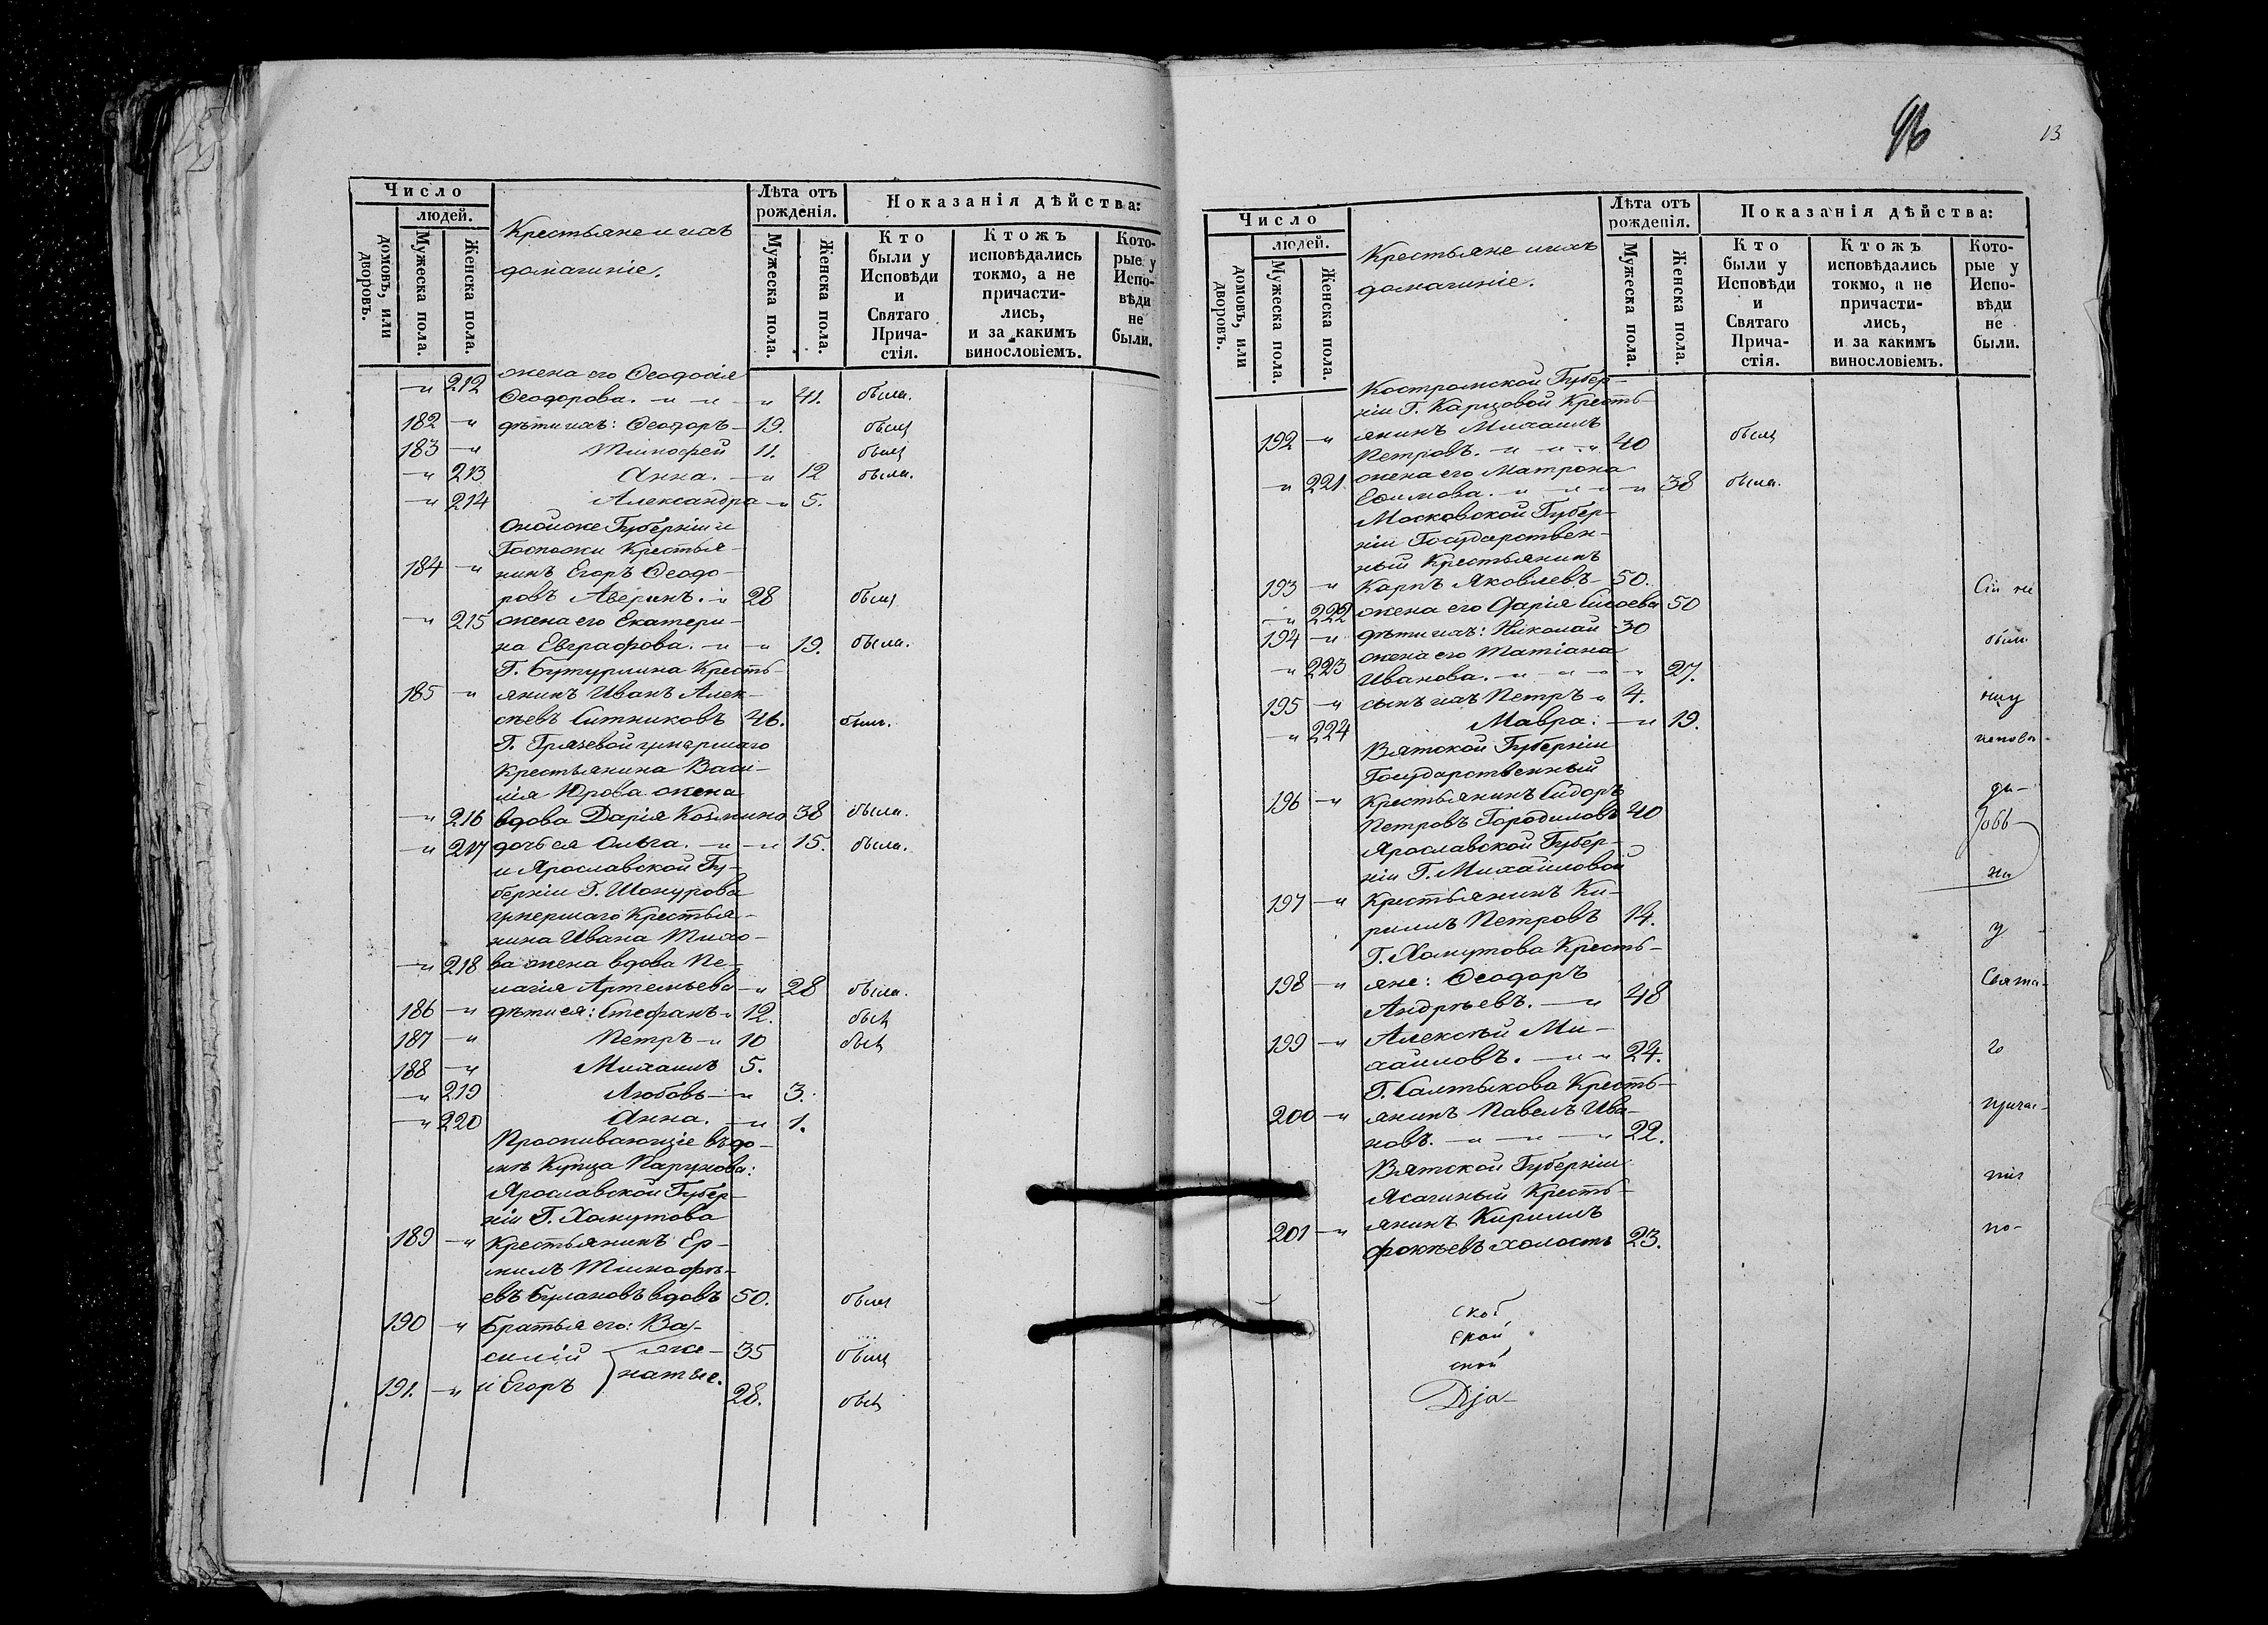 Число
людей.
домовъ, или дворовъ.
Мужеска пола.
Женска пола.
Крестьяне и ихъ
домашніе.
Лѣта отъ рожденія.
Мужеска пола.
Женска пола.
Показанія дѣйства:
Кто были у Исповѣди и Святаго Прича-стія.
Ктожъ исповѣдались токмо, а не причасти-лись, и за какимъ винословіемъ.
Кото-рые у Испо-вѣди не были.
жена его Ѳеодосія
— „ 212 Ѳеодорова. — „ — „ — „ 41. была.
182 — „ дѣти ихъ: Ѳеодоръ — 19. былъ
183 — „ Тимофей 11. былъ
— „ 213 Анна. — „ 12 была.
— „ 214 Александра — „ 5.
Онойже Губерніи и
Госпожи Крестья-
184 — „ нинъ Егоръ Ѳеодо-
ровъ Аверинъ. „ 28 былъ
— „ 215 жена его Екатери-
на Евграфова. — „ — „ 19. была.
Г. Бутурлина Кресть-
185 — „ янинъ Иванъ Алек-
сѣевъ Ситниковъ 46. былъ.
Г. Грязевой умершаго
Крестьянина Васи-
лія Юрова жена
— „ 216 вдова Дарія Козмина 38 была.
— „ 217 дочь ея Ольга. — „ — „ 15. была.
и Ярославской Гу-
берніи Г. Шокурова
умершаго Крестья-
нина Ивана Тихо-
— „ 218 ва жена вдова Пе-
лагія Артемьева — „ 28 была.
186 — „ дѣти ея: Стефанъ „ 12. былъ
187 — „ Петръ — „ 10 былъ
188 — „ Михаилъ 5.
— „ 219 Любовь — „ 3.
— „ 220 Анна. — „ 1.
Проживающіе въ до-
мѣ Купца Парунова:
Ярославской Губер-
ніи Г. Хомутова
189 — „ Крестьянинъ Ер-
милъ Тимофѣ-
евъ Булановъ вдовъ 50. былъ
190 — „ Братья его: Ва-
силій же- 35 былъ
191. — „ и Егоръ натые. 28. былъ
96
13
Число
людей.
домовъ, или дворовъ.
Мужеска пола.
Женска пола.
Крестьяне и ихъ
домашніе.
Лѣта отъ рожденія.
Мужеска пола.
Женска пола.
Показанія дѣйства:
Кто были у Исповѣди и Святаго Прича-стія.
Ктожъ исповѣдались токмо, а не причасти-лись, и за какимъ винословіемъ.
Кото-рые у Испо-вѣди не были.
Костромской Губер-
ніи Г. Карцовой Кресть-
192 — „ янинъ Михаилъ
Петровъ. — „ — „ 40 былъ
— „ 221. жена его Матрона
Ефимова. — „ — „ — „ 38 была.
Московской Губер-
ніи Государствен-
ный Крестьянинъ
193 — „ Карпъ Яковлевъ — 50. Сіи не
— „ 222 жена его Дарія Сысоева 50
194 — „ дѣти ихъ: Николай 30 были
жена его Татіана
— „ 223 Иванова. — „ — „ 27.
195 — „ сынъ ихъ Петръ „ 4.
— „ 224 Мавра: — „ 19.
Вятской Губерніи исповѣ-
Государственный
196 — „ Крестьянинъ Сидоръ ди-
Петровъ Городиловъ 40
Ярославской Губер-
ніи Г. Михайловой ни
197 — „ Крестьянинъ Ки-
рилъ Петровъ 14. у
Г. Хомутова Кресть-
198 — „ яне: Ѳеодоръ Свята-
Андрѣевъ. — „ 48
199 — „ Алексѣй Ми- го
хайловъ. — „ — „ 24.
Г. Салтыкова Кресть-
200 — „ янинъ Павелъ Ива- причас-
новъ. — „ — „ — „ 22.
Вятской Губерніи тія
Ясашный Кресть-
201 — „ янинъ Кирилъ по-
Фокѣевъ холостъ 23.
Дja-